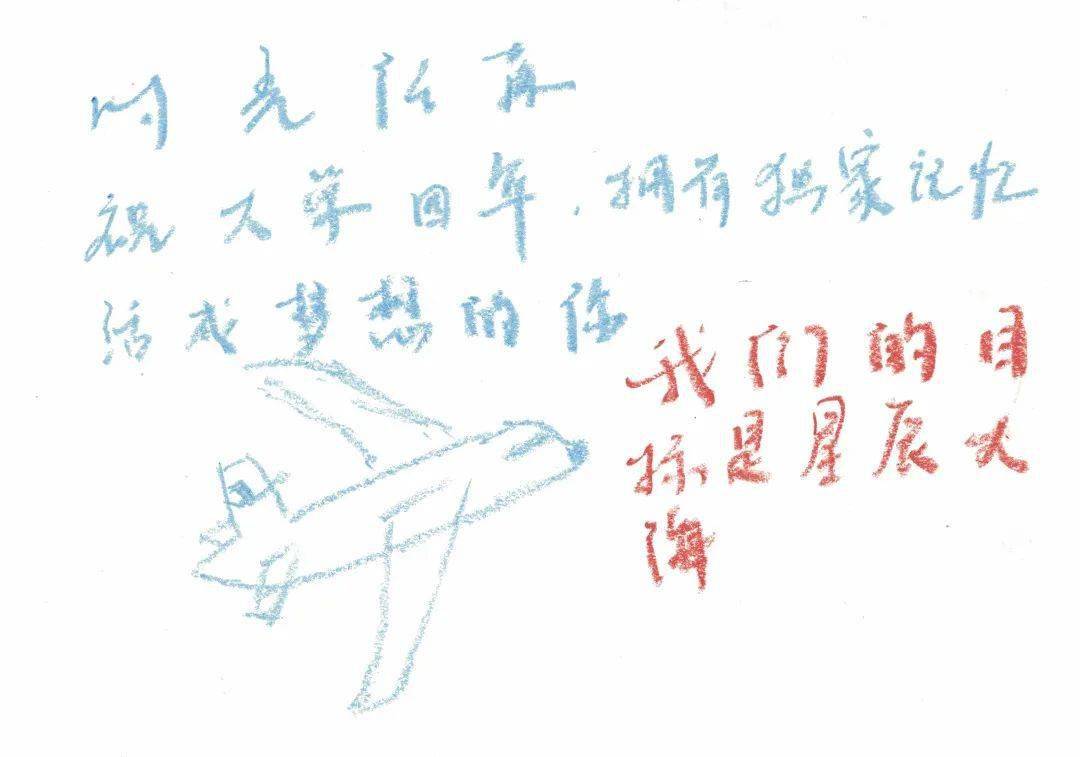 时光荏苒
祝大学四年,拥有独家记忆
活成梦想的你
我们的目
标是星辰大
海